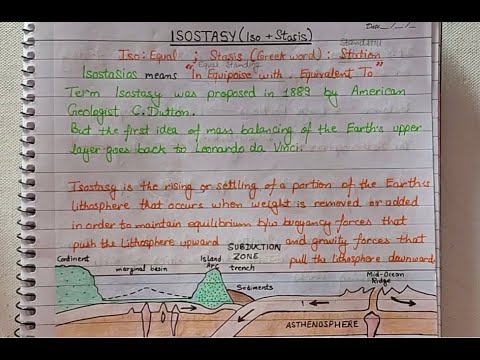 Date __/__/__
ISOSTASY (Iso + Stasis)
Standstill
Iso: Equal ; Stasis (Greek word) : Station
"Equal Standing"
Isostasios means "In Equipoise with, Equivalent To"
Term Isostasy was proposed in 1889 by American
Geologist C. Dutton.
But the first idea of mass balancing of the Earth's upper
layer goes back to Leonardo da Vinci.
Isostasy is the rising or settling of a portion of the Earth's
lithosphere that occurs when weight is removed or added
in order to maintain equilibrium b/w buoyancy forces that
push the lithosphere upward and gravity forces that
pull the lithosphere downward
SUBDUCTION
ZONE
Continent
marginal basin
Island
Arc
trench
Sediments
Mid-Ocean
Ridge
ASTHENOSPHERE